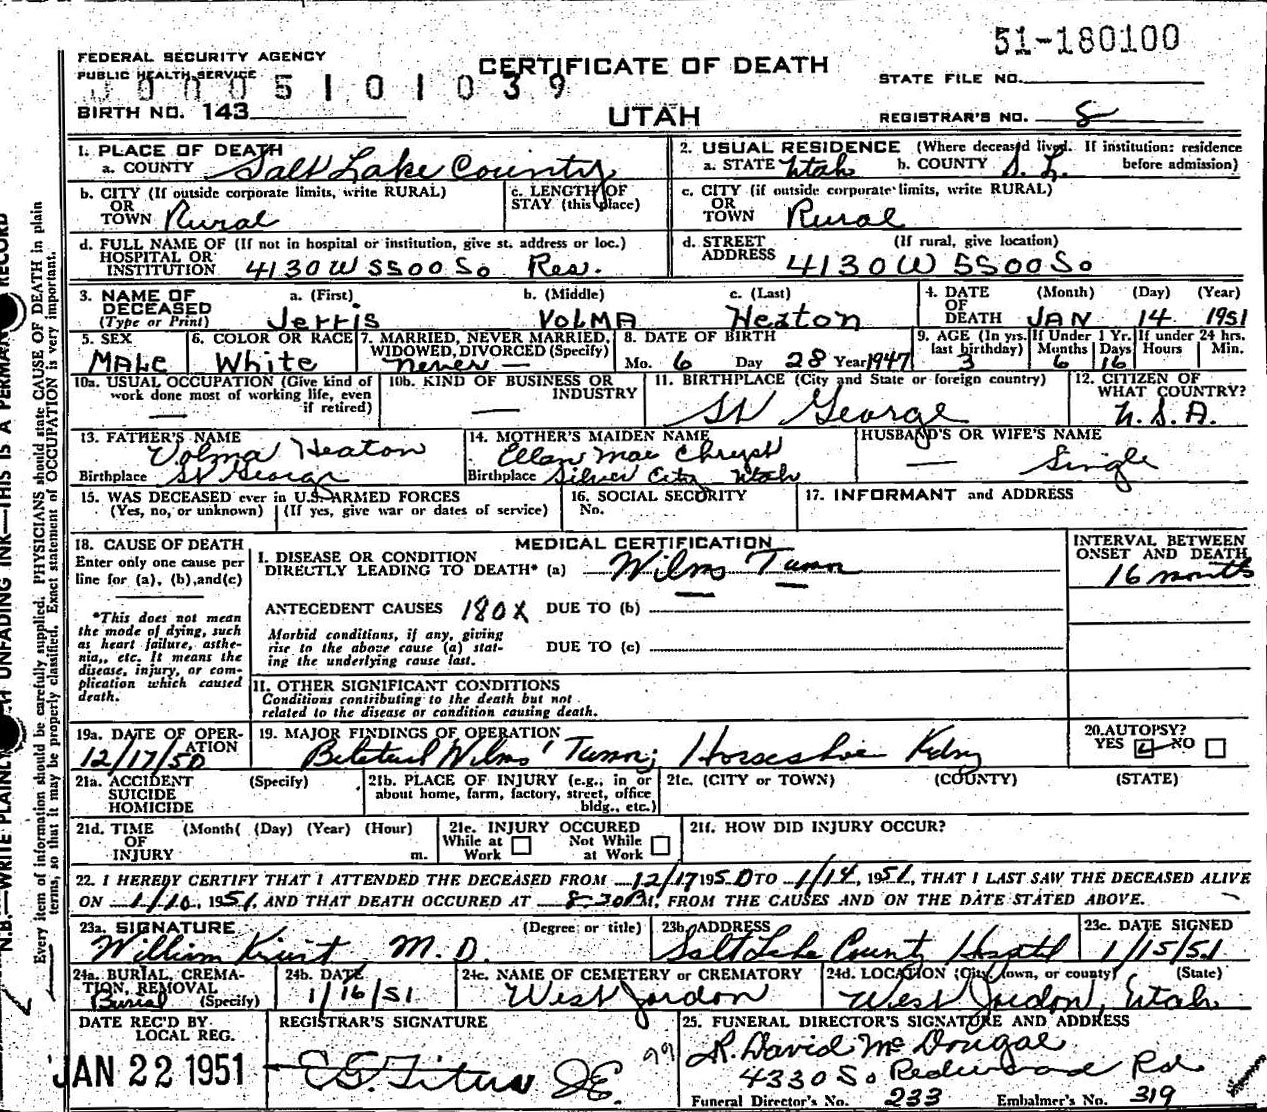 51-180100
FEDERAL SECURITY AGENCY
PUBLIC HEALTH SERVICE
CERTIFICATE OF DEATH
STATE FILE NO.
0005101039
BIRTH NO. 143
UTAH
REGISTRAR'S NO. 8
1. PLACE OF DEATH
a. COUNTY Salt Lake County
2. USUAL RESIDENCE (Where deceased lived. If institution: residence before admission)
a. STATE Utah b. COUNTY S. L.
b. CITY (If outside corporate limits, write RURAL)
OR
TOWN Rural
c. LENGTH OF
STAY (this place)
c. CITY (if outside corporate limits, write RURAL)
OR
TOWN Rural
d. FULL NAME OF (If not in hospital or institution, give st. address or loc.)
HOSPITAL OR
INSTITUTION 4130 W 5500 So Res.
d. STREET (If rural, give location)
ADDRESS 4130 W 5500 So
3. NAME OF
DECEASED
(Type or Print)
a. (First) b. (Middle) c. (Last)
Jerris VOLMA Heaton
4. DATE (Month) (Day) (Year)
OF
DEATH JAN 14 1951
5. SEX
MALE
6. COLOR OR RACE
White
7. MARRIED, NEVER MARRIED,
WIDOWED, DIVORCED (Specify)
never —
8. DATE OF BIRTH
Mo. 6 Day 28 Year 1947
9. AGE (In yrs. last birthday) 3
If Under 1 Yr. Months 6 Days 16
If under 24 hrs. Hours Min.
10a. USUAL OCCUPATION (Give kind of
work done most of working life, even
if retired) —
10b. KIND OF BUSINESS OR
INDUSTRY
—
11. BIRTHPLACE (City and State or foreign country)
St George
12. CITIZEN OF
WHAT COUNTRY?
U.S.A.
13. FATHER'S NAME
Volma Heaton
Birthplace St George
14. MOTHER'S MAIDEN NAME
Ellen Mae
Birthplace Silver City Utah
HUSBAND'S OR WIFE'S NAME
— Single
15. WAS DECEASED ever in U.S. ARMED FORCES
(Yes, no, or unknown) (If yes, give war or dates of service)
16. SOCIAL SECURITY
No.
17. INFORMANT and ADDRESS
18. CAUSE OF DEATH
Enter only one cause per
line for (a), (b), and (c)
*This does not mean
the mode of dying, such
as heart failure, asthe-
nia,, etc. It means the
disease, injury, or com-
plication which caused
death.
MEDICAL CERTIFICATION
I. DISEASE OR CONDITION
DIRECTLY LEADING TO DEATH* (a) Wilms Tumor
ANTECEDENT CAUSES 180X DUE TO (b)
Morbid conditions, if any, giving
rise to the above cause (a) stat-
ing the underlying cause last.
DUE TO (c)
II. OTHER SIGNIFICANT CONDITIONS
Conditions contributing to the death but not
related to the disease or condition causing death.
INTERVAL BETWEEN
ONSET AND DEATH
16 months
19a. DATE OF OPER-
ATION
12/17/50
19. MAJOR FINDINGS OF OPERATION
Bilateral Wilms' Tumor; Horseshoe Kidney
20. AUTOPSY?
YES NO
21a. ACCIDENT (Specify)
SUICIDE
HOMICIDE
21b. PLACE OF INJURY (e.g., in or
about home, farm, factory, street, office
bldg., etc.)
21c. (CITY or TOWN) (COUNTY) (STATE)
21d. TIME (Month( (Day) (Year) (Hour)
OF
INJURY m.
21e. INJURY OCCURED
While at Work Not While at Work
21f. HOW DID INJURY OCCUR?
22. I HEREBY CERTIFY THAT I ATTENDED THE DECEASED FROM 12/17 1950 TO 1/14, 1951, THAT I LAST SAW THE DECEASED ALIVE
ON 1/10, 1951, AND THAT DEATH OCCURED AT 8-20 P.M., FROM THE CAUSES AND ON THE DATE STATED ABOVE.
23a. SIGNATURE (Degree or title)
William M. D.
23b. ADDRESS
Salt Lake County Hospital
23c. DATE SIGNED
1/15/51
24a. BURIAL, CREMA-
TION, REMOVAL
Burial (Specify)
24b. DATE
1/16/51
24c. NAME OF CEMETERY or CREMATORY
West Jordon
24d. LOCATION (City, town, or county) (State)
West Jordon, Utah
DATE REC'D BY.
LOCAL REG.
JAN 22 1951
REGISTRAR'S SIGNATURE
E. G. Titus
25. FUNERAL DIRECTOR'S SIGNATURE AND ADDRESS
R. David McDougal
4330 So Redwood Rd
Funeral Director's No. 233 Embalmer's No. 319
Every item of information should be carefully supplied. PHYSICIANS should state CAUSE OF DEATH in plain
terms, so that it may be properly classified. Exact statement of OCCUPATION is very important.